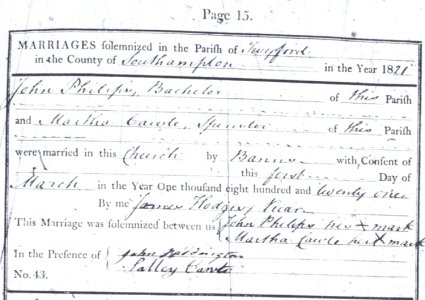 Page 15.
MARRIAGES solemnized in the Parish of Twyford
in the County of Southampton in the Year 1821
John Philips, Bachelor of this Parish
and Martha Cawte, Spinster of this Parish
were married in this Church by Banns with Consent of
this first Day of
March in the Year One thousand eight hundred and twenty one
By me James Hodges Vicar
This Marriage was solemnized between us John Philips his X mark
Martha Cawte her X mark
In the Presence of John
Salley Cawte
No. 43.